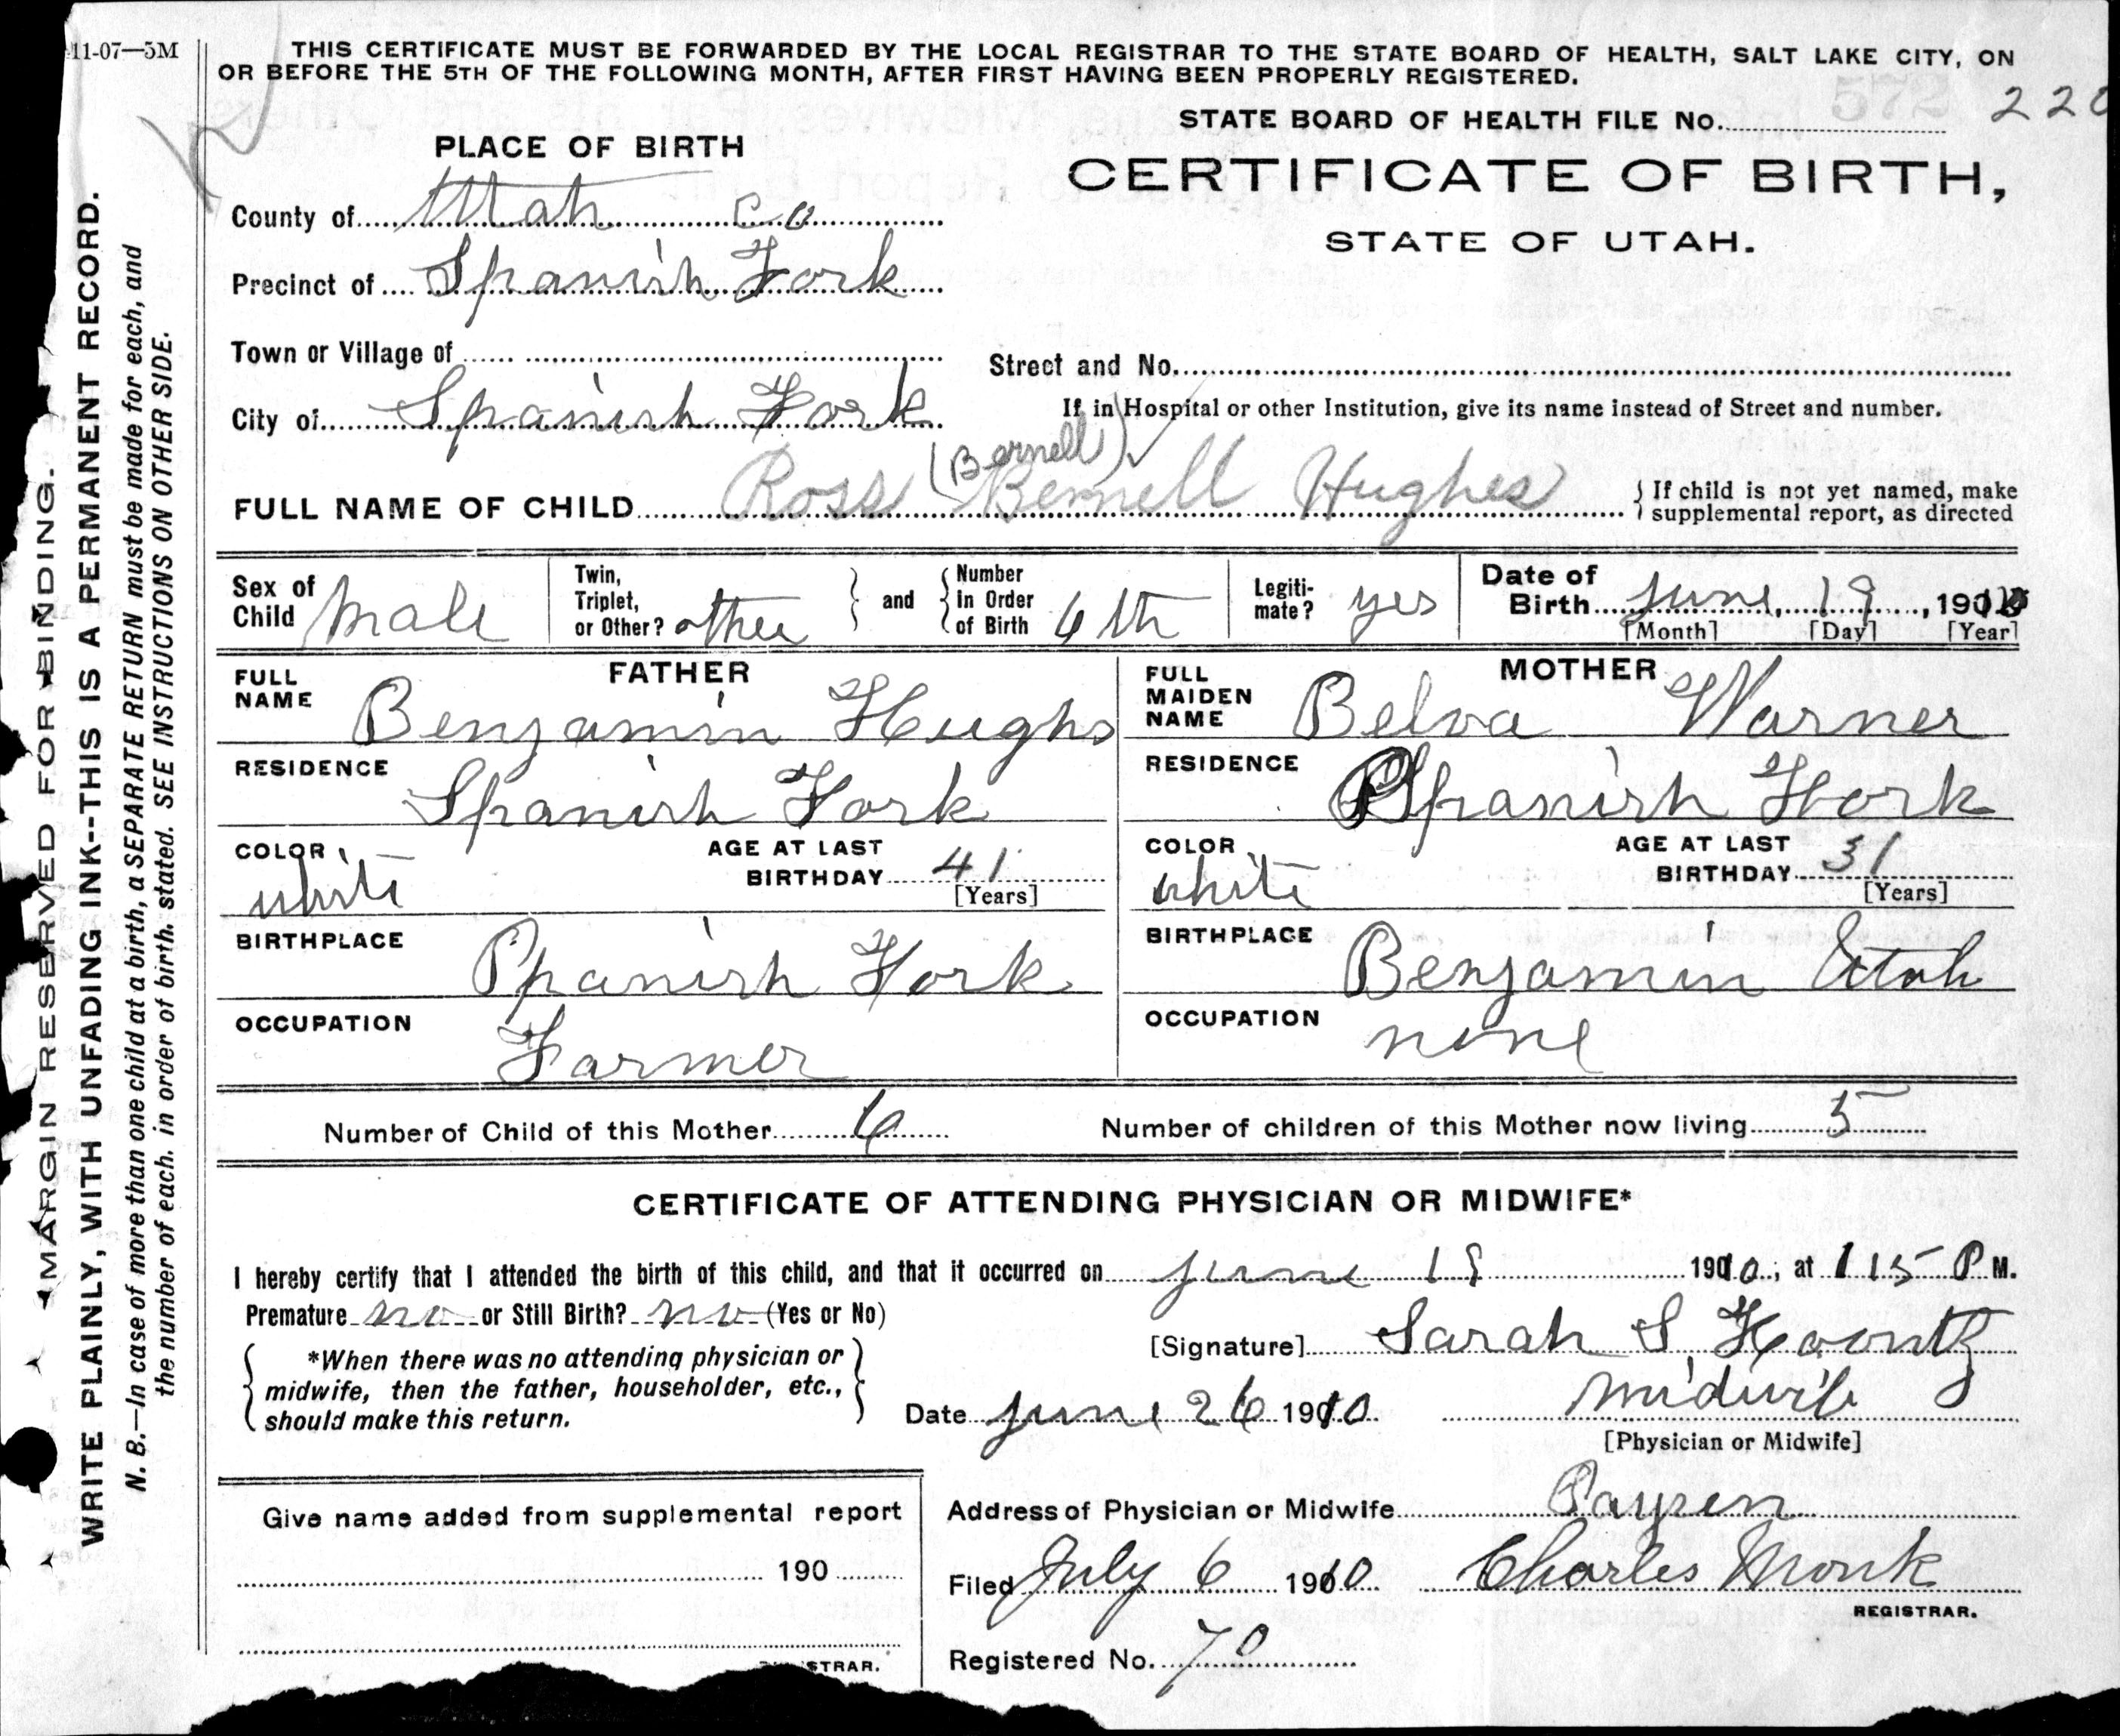 11-07—5M
THIS CERTIFICATE MUST BE FORWARDED BY THE LOCAL REGISTRAR TO THE STATE BOARD OF HEALTH, SALT LAKE CITY, ON
OR BEFORE THE 5TH OF THE FOLLOWING MONTH, AFTER FIRST HAVING BEEN PROPERLY REGISTERED.
572
STATE BOARD OF HEALTH FILE No. 220
PLACE OF BIRTH
CERTIFICATE OF BIRTH,
STATE OF UTAH.
County of Utah Co
Precinct of Spanish Fork
Town or Village of
Street and No.
City of Spanish Fork
If in Hospital or other Institution, give its name instead of Street and number.
(Bernell)
FULL NAME OF CHILD Ross Bernell Hughes
{ If child is not yet named, make
supplemental report, as directed
Sex of Child Male
Twin, Triplet, or Other? other } and { Number in Order of Birth 6th
Legiti-mate? yes
Date of Birth June 19, 1910
[Month] [Day] [Year]
FATHER
FULL NAME Benjamin Hughs
RESIDENCE Spanish Fork
COLOR white
AGE AT LAST BIRTHDAY 41
[Years]
BIRTHPLACE Spanish Fork
OCCUPATION Farmer
MOTHER
FULL MAIDEN NAME Belva Warner
RESIDENCE Spanish Fork
COLOR white
AGE AT LAST BIRTHDAY 31
[Years]
BIRTHPLACE Benjamin Utah
OCCUPATION none
Number of Child of this Mother 6 Number of children of this Mother now living 5
CERTIFICATE OF ATTENDING PHYSICIAN OR MIDWIFE*
I hereby certify that I attended the birth of this child, and that it occurred on June 19 1910, at 1 15 P M.
Premature no or Still Birth? no (Yes or No)
[Signature] Sarah S Koontz
*When there was no attending physician or
midwife, then the father, householder, etc.,
should make this return.
Date June 26 1910 Midwife
[Physician or Midwife]
Give name added from supplemental report
190
REGISTRAR.
Address of Physician or Midwife Paysen
Filed July 6 1910 Charles Monk
REGISTRAR.
Registered No. 70
MARGIN RESERVED FOR BINDING.
WRITE PLAINLY, WITH UNFADING INK--THIS IS A PERMANENT RECORD.
N. B.—In case of more than one child at a birth, a SEPARATE RETURN must be made for each, and
the number of each. in order of birth. stated. SEE INSTRUCTIONS ON OTHER SIDE.